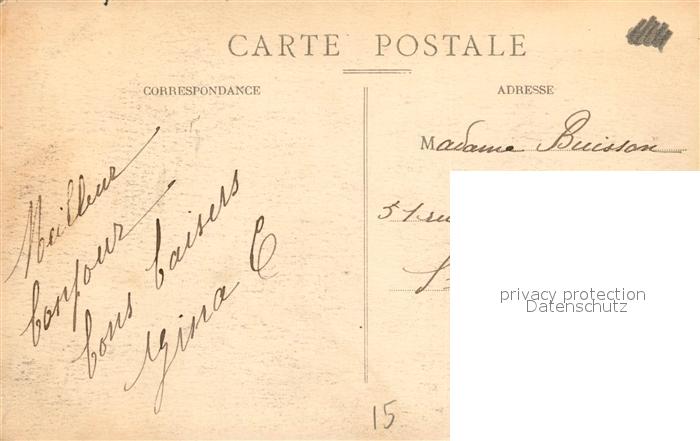 CARTE POSTALE
CORRESPONDANCE
ADRESSE
Meilleur
bonjour
bons baisers
Gina C
Madame Buisson
51 ru
privacy protection
Datenschutz
15